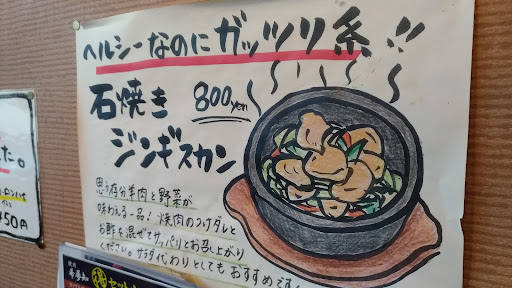 ヘルシーなのにガッツリ系!!
石焼き
800yen
ジンギスカン
思う存分羊肉と野菜が
味わえる一品!焼肉のつけダレと
お酢を混ぜてサッパリとお召し上がり
ください。サラダ代わりとしてもおすすめです!
た。
450円